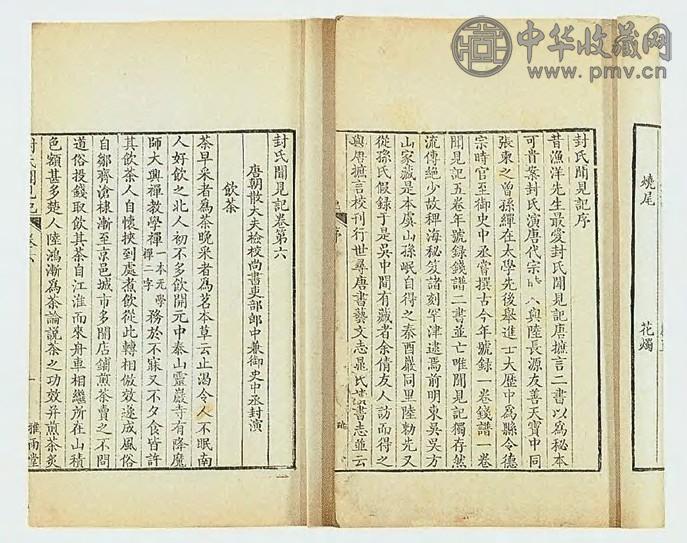 中华收藏网
www.pmv.cn
燒尾
花燭
封氏聞見記序
昔漁洋先生最愛封氏聞見記唐摭言二書以為秘本
可貴案封氏演唐代宗與陸長源友善天寶中同
張柬之曾孫繟在太學先後舉進士大歷中為縣令德
宗時官至御史中丞嘗撰古今年號錄一卷錢譜一卷
聞見記五卷年號錄錢譜二書並亡唯聞見記獨存然
流傳絕少故稗海秘笈諸刻罕津逮焉前明東吳吳方
山家藏是本虞山孫岷自得之秦酉巖同里陸勅先又
從孫氏假錄于是吳中間有藏者余倩友人訪而得之
與唐摭言校刊行世尋唐書藝文志晁氏書志並云
序
封氏聞見記卷第六
唐朝散大夫檢校尚書吏部郎中兼御史中丞封演
飲茶
茶早采者為茶晚采者為茗本草云止渴令人不眠南
人好飲之北人初不多飲開元中泰山靈巖寺有降魔
師大興禪教學禪一本无學禪二字務於不寐又不夕食皆許
其飲茶人自懷挾到處煮飲從此轉相倣效遂成風俗
自鄒齊滄棣漸至京邑城市多開店鋪煎茶賣之不問
道俗投錢取飲其茶自江淮而來舟車相繼所在山積
色額甚多楚人陸鴻漸為茶論說茶之功效并煎茶炙
封氏聞見記
一
雅雨堂